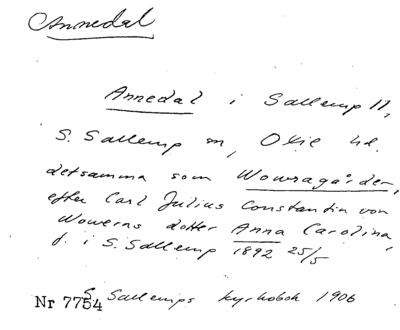 Annedal
Annedal i Sallerup 11,
S. Sallerup sn, Oxie hd.
detsamma som Wowragården,
efter Carl Julius Constantin von
Wowerns dotter Anna Carolina,
f. i S. Sallerup 1892 25/5
S. Sallerups kyrkobok 1906
Nr 7754